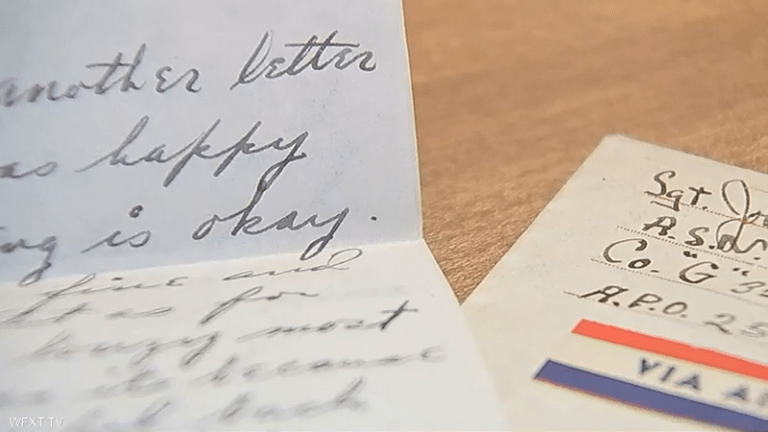 another letter
as happy
ing is okay.
fine and
as for
most
because
back
Sgt.
A.S.
Co. "G"
A.P.O. 25
VIA AI
WFXT TV